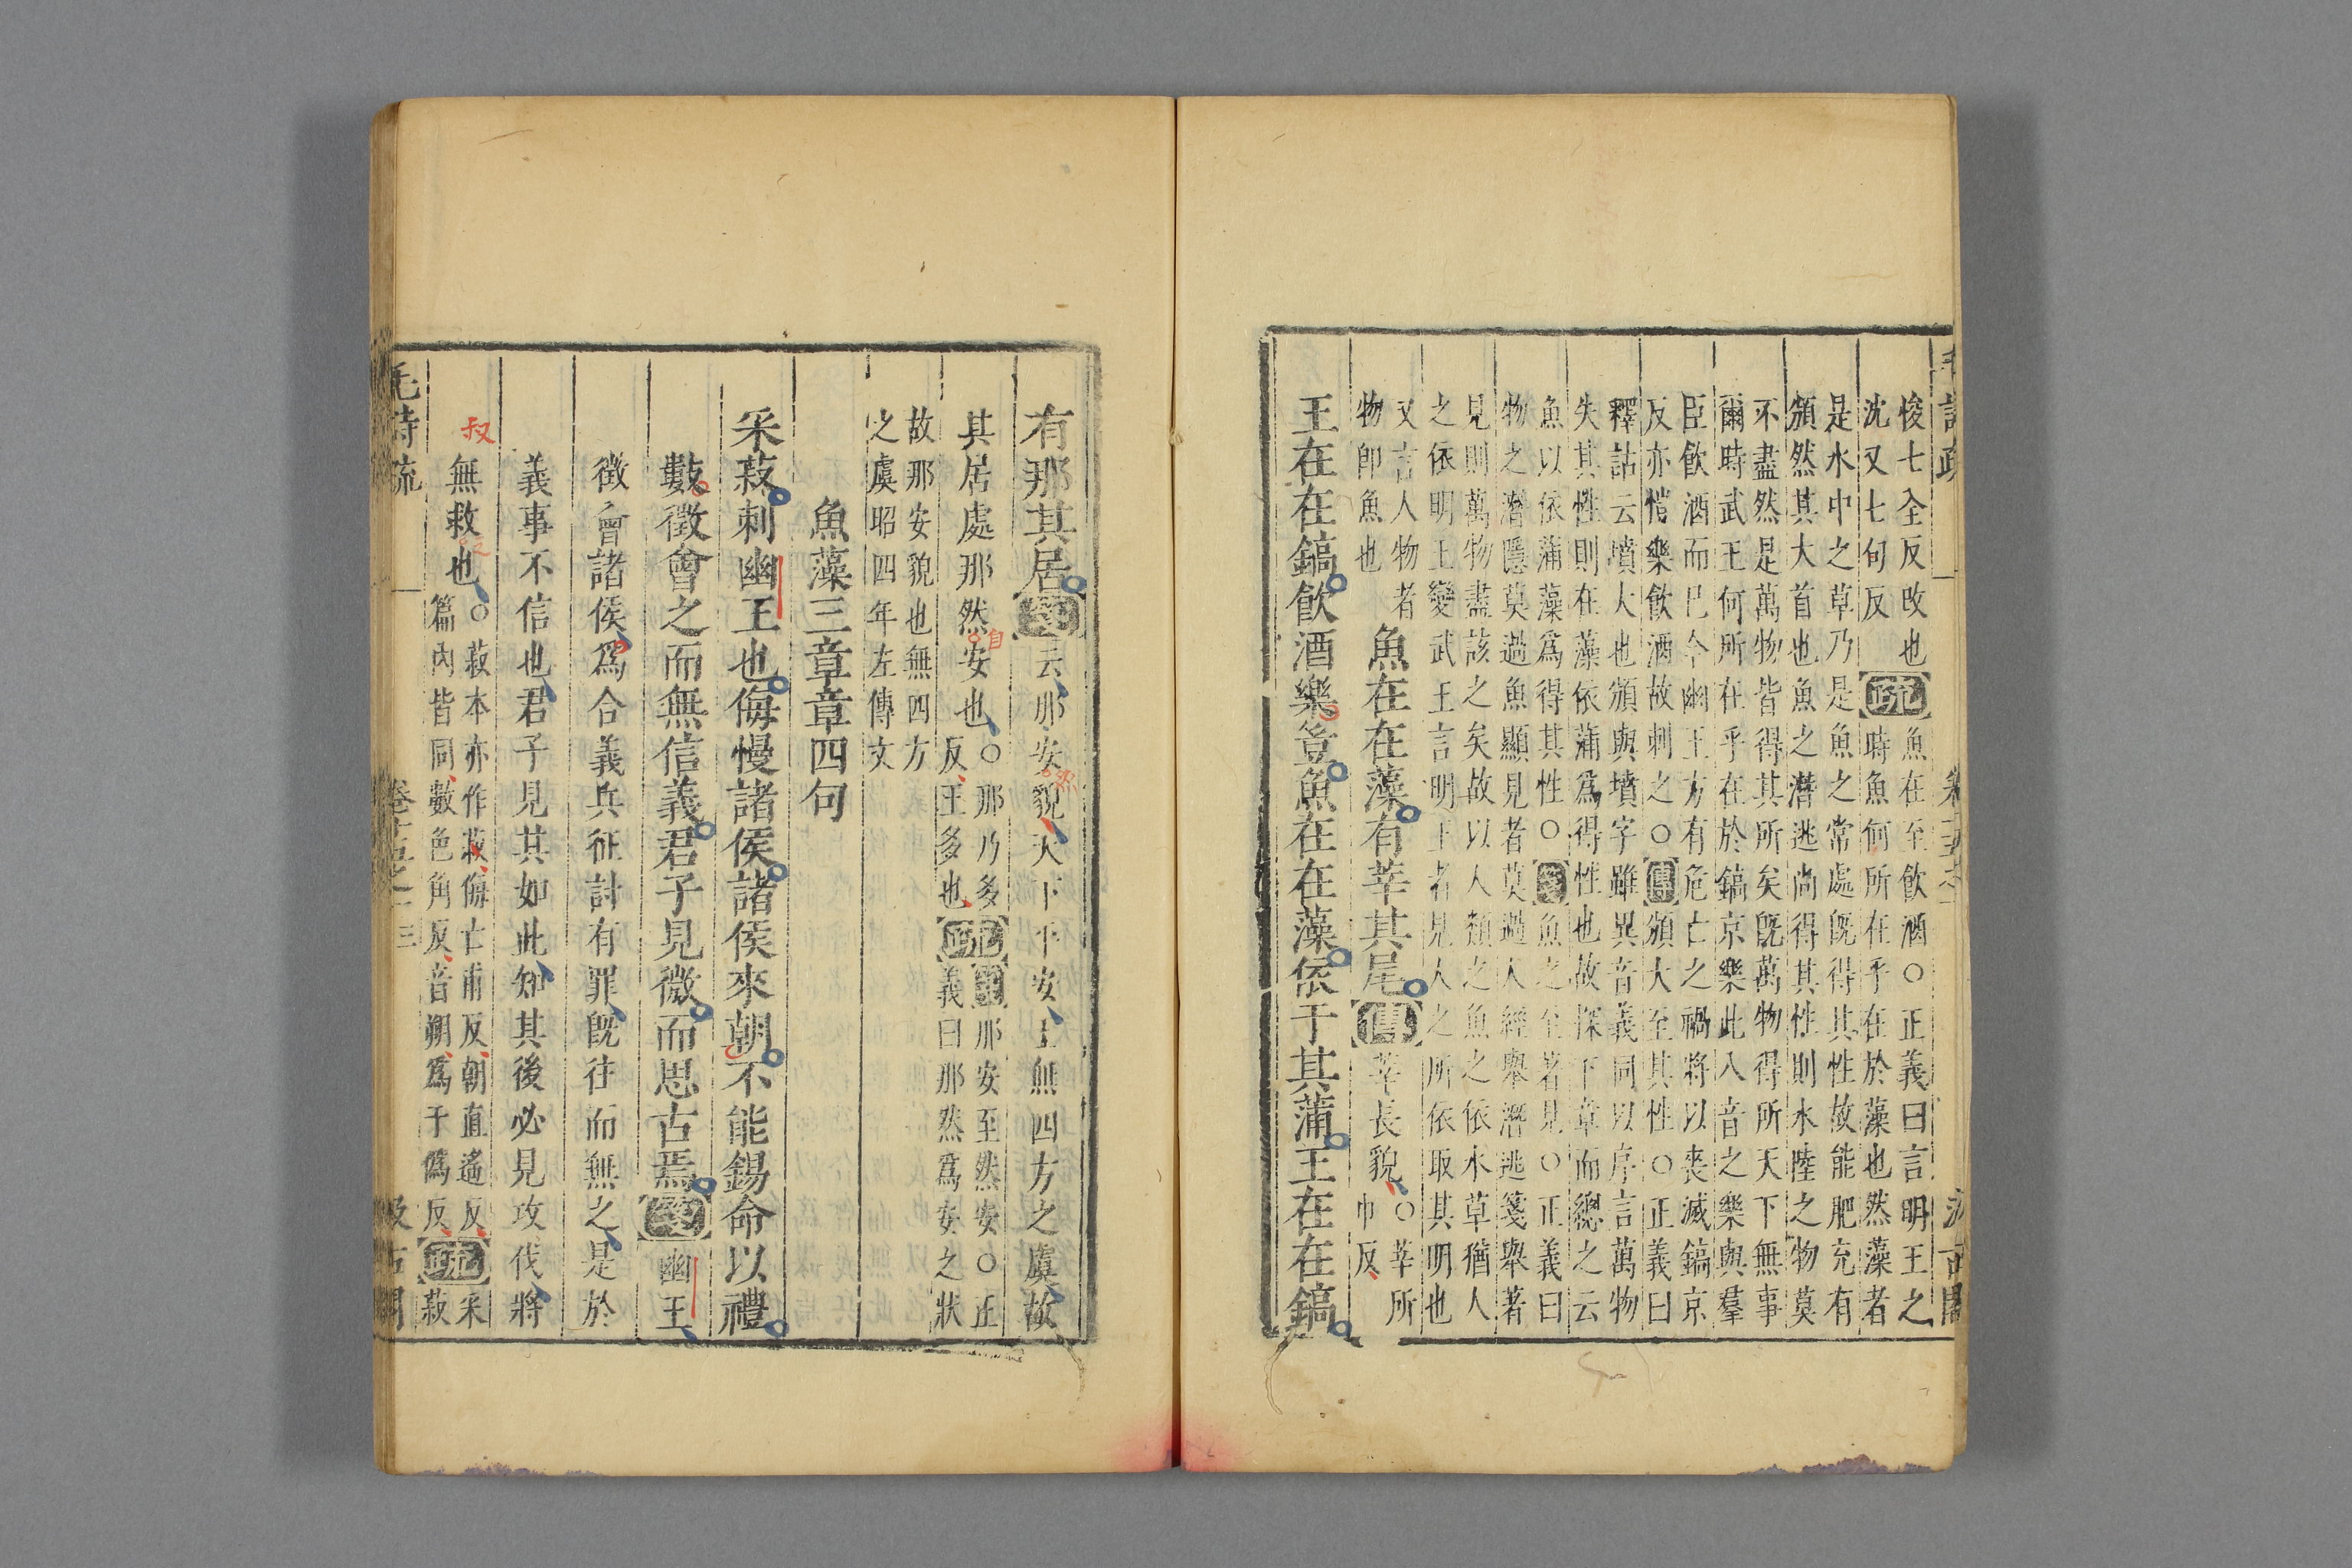 毛詩疏 卷十五之一 汲古閣
悛七全反改也疏魚在至飲酒○正義曰言明王之
沈又七旬反時魚何所在乎在於藻也然藻者
是水中之草乃是魚之常處旣得其性故能肥充有
頒然其大首也魚之潛逃尚得其性則水陸之物莫
不盡然是萬物皆得其所矣旣萬物得所天下無事
爾時武王何所在乎在於鎬京樂此八音之樂與羣
臣飲酒而已今幽王方有危亡之禍將以喪滅鎬京
反亦愷樂飲酒故刺之○傳頒大至其性○正義曰
釋詁云墳大也頒與墳字雖異音義同以序言萬物
失其性則在藻依蒲爲得性也故探下章而總之云
魚以依蒲藻爲得其性○箋魚之至著見○正義曰
物之潛隱莫過魚顯見者莫過人經舉潛逃箋舉著
見則萬物盡該之矣故以人類之魚之依水草猶人
之依明王變武王言明王者見人之所依取其明也
又言人物者
物卽魚也
魚在在藻有莘其尾傳莘長貌○莘所
巾反
王在在鎬飲酒樂豈魚在在藻依于其蒲王在在鎬
有那其居箋云那安貌天下平安王無四方之虞故
然
其居處那然安也○那乃多
反王多也疏箋那安至然安○正
義曰那然爲安之狀
自
故那安貌也無四方
之虞昭四年左傳文
魚藻三章章四句
采菽刺幽王也侮慢諸侯諸侯來朝不能錫命以禮
數徵會之而無信義君子見微而思古焉箋幽王
徵會諸侯爲合義兵征討有罪旣往而無之是於
義事不信也君子見其如此知其後必見攻伐將
叔
無救也○菽本亦作菽侮亡甫反朝直遙反
篇內皆同數色角反音朔爲于僞反疏采
菽
毛詩疏 卷十五之一 三 汲古閣